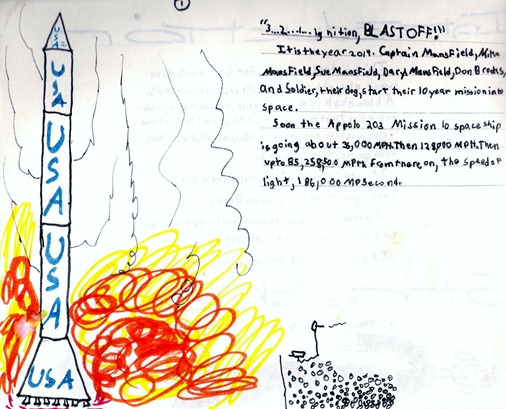 1
"3...2...1... Ignition, BLAST OFF!!"
It is the year 2019. Captain Mansfield, Mike
Mansfield, Sue Mansfield, Daryl Mansfield, Don Brooks,
and Soldier, their dog, start their 10 year mission into
space.
Soon the Appolo 203 Mission 10 space ship
is going about 36,000 MPH. Then 128,000 MPH. Then
up to 85, MPH. From there on, the speed of
light, 186,000 MP Second.
USA
USA
USA
USA
USA